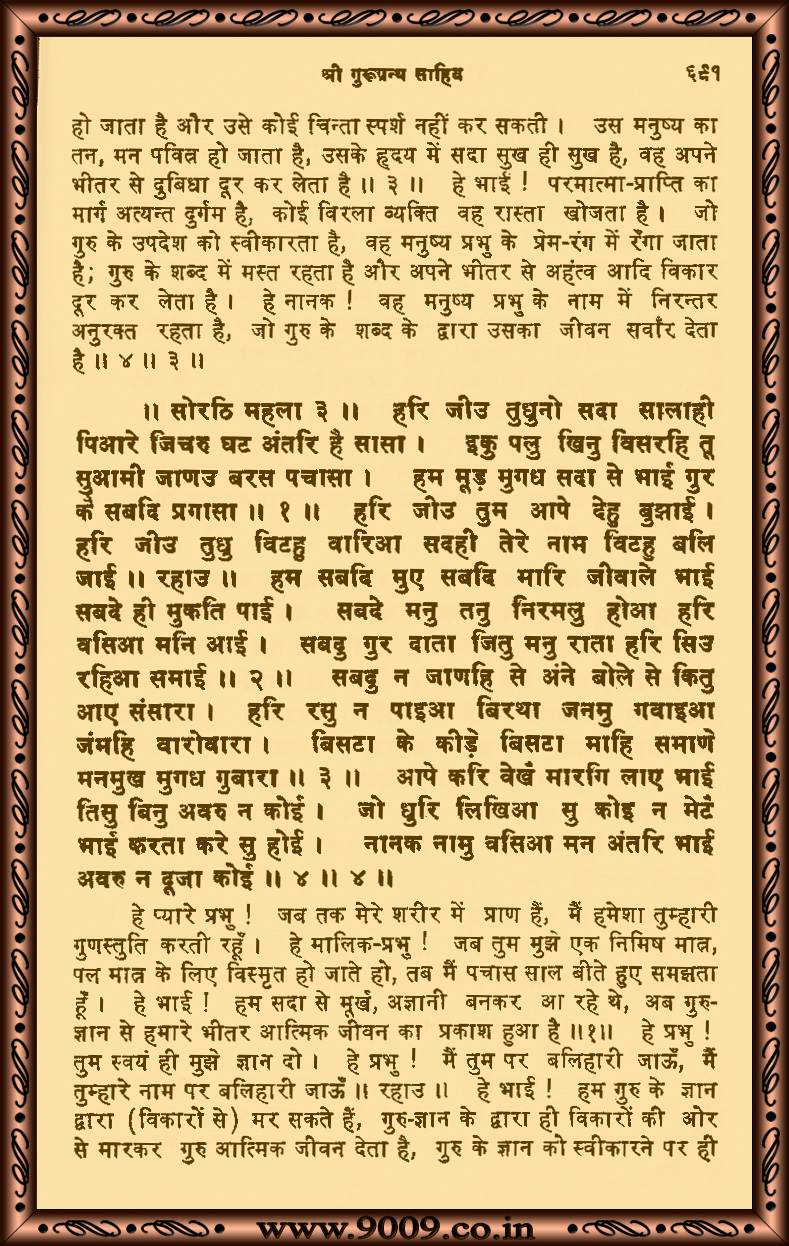 श्री गुरूग्रन्थ साहिब ६९१
हो जाता है और उसे कोई चिन्ता स्पर्श नहीं कर सकती । उस मनुष्य का
तन, मन पवित्न हो जाता है, उसके हृदय में सदा सुख ही सुख है, वह अपने
भीतर से दुबिधा दूर कर लेता है ॥ ३ ॥ हे भाई ! परमात्मा-प्राप्ति का
मार्ग अत्यन्त दुर्गम है, कोई विरला व्यक्ति वह रास्ता खोजता है । जो
गुरु के उपदेश को स्वीकारता है, वह मनुष्य प्रभु के प्रेम-रंग में रँगा जाता
है; गुरु के शब्द में मस्त रहता है और अपने भीतर से अहंत्व आदि विकार
दूर कर लेता है । हे नानक ! वह मनुष्य प्रभु के नाम में निरन्तर
अनुरक्त रहता है, जो गुरु के शब्द के द्वारा उसका जीवन सवाँर देता
है ॥ ४ ॥ ३ ॥
॥ सोरठि महला ३ ॥ हरि जीउ तुधुनो सदा सालाही
पिआरे जिचरु घट अंतरि है सासा । इकु पलु खिनु विसरहि तू
सुआमी जाणउ बरस पचासा । हम मूड़ मुगध सदा से भाई गुर
कै सबदि प्रगासा ॥ १ ॥ हरि जीउ तुम आपे देहु बुझाई ।
हरि जीउ तुधु विटहु वारिआ सदही तेरे नाम विटहु बलि
जाई ॥ रहाउ ॥ हम सबदि मुए सबदि मारि जीवाले भाई
सबदे ही मुकति पाई । सबदे मनु तनु निरमलु होआ हरि
वसिआ मनि आई । सबदु गुर दाता जितु मनु राता हरि सिउ
रहिआ समाई ॥ २ ॥ सबदु न जाणहि से अंने बोले से कितु
आए संसारा । हरि रसु न पाइआ बिरथा जनमु गवाइआ
जंमहि वारोवारा । बिसटा के कीड़े बिसटा माहि समाणे
मनमुख मुगध गुबारा ॥ ३ ॥ आपे करि वेखै मारगि लाए भाई
तिसु बिनु अवरु न कोई । जो धुरि लिखिआ सु कोइ न मेटै
भाई करता करे सु होई । नानक नामु वसिआ मन अंतरि भाई
अवरु न दूजा कोई ॥ ४ ॥ ४ ॥
हे प्यारे प्रभु ! जब तक मेरे शरीर में प्राण हैं, मैं हमेशा तुम्हारी
गुणस्तुति करती रहूँ । हे मालिक-प्रभु ! जब तुम मुझे एक निमिष मात्न,
पल मात्न के लिए विस्मृत हो जाते हो, तब मैं पचास साल बीते हुए समझता
हूँ । हे भाई ! हम सदा से मूर्ख, अज्ञानी बनकर आ रहे थे, अब गुरु-
ज्ञान से हमारे भीतर आत्मिक जीवन का प्रकाश हुआ है ॥१॥ हे प्रभु !
तुम स्वयं ही मुझे ज्ञान दो । हे प्रभु ! मैं तुम पर बलिहारी जाऊँ, मैं
तुम्हारे नाम पर बलिहारी जाऊँ ॥ रहाउ ॥ हे भाई ! हम गुरु के ज्ञान
द्वारा (विकारों से) मर सकते हैं, गुरु-ज्ञान के द्वारा ही विकारों की ओर
से मारकर गुरु आत्मिक जीवन देता है, गुरु के ज्ञान को स्वीकारने पर ही
www.9009.co.in